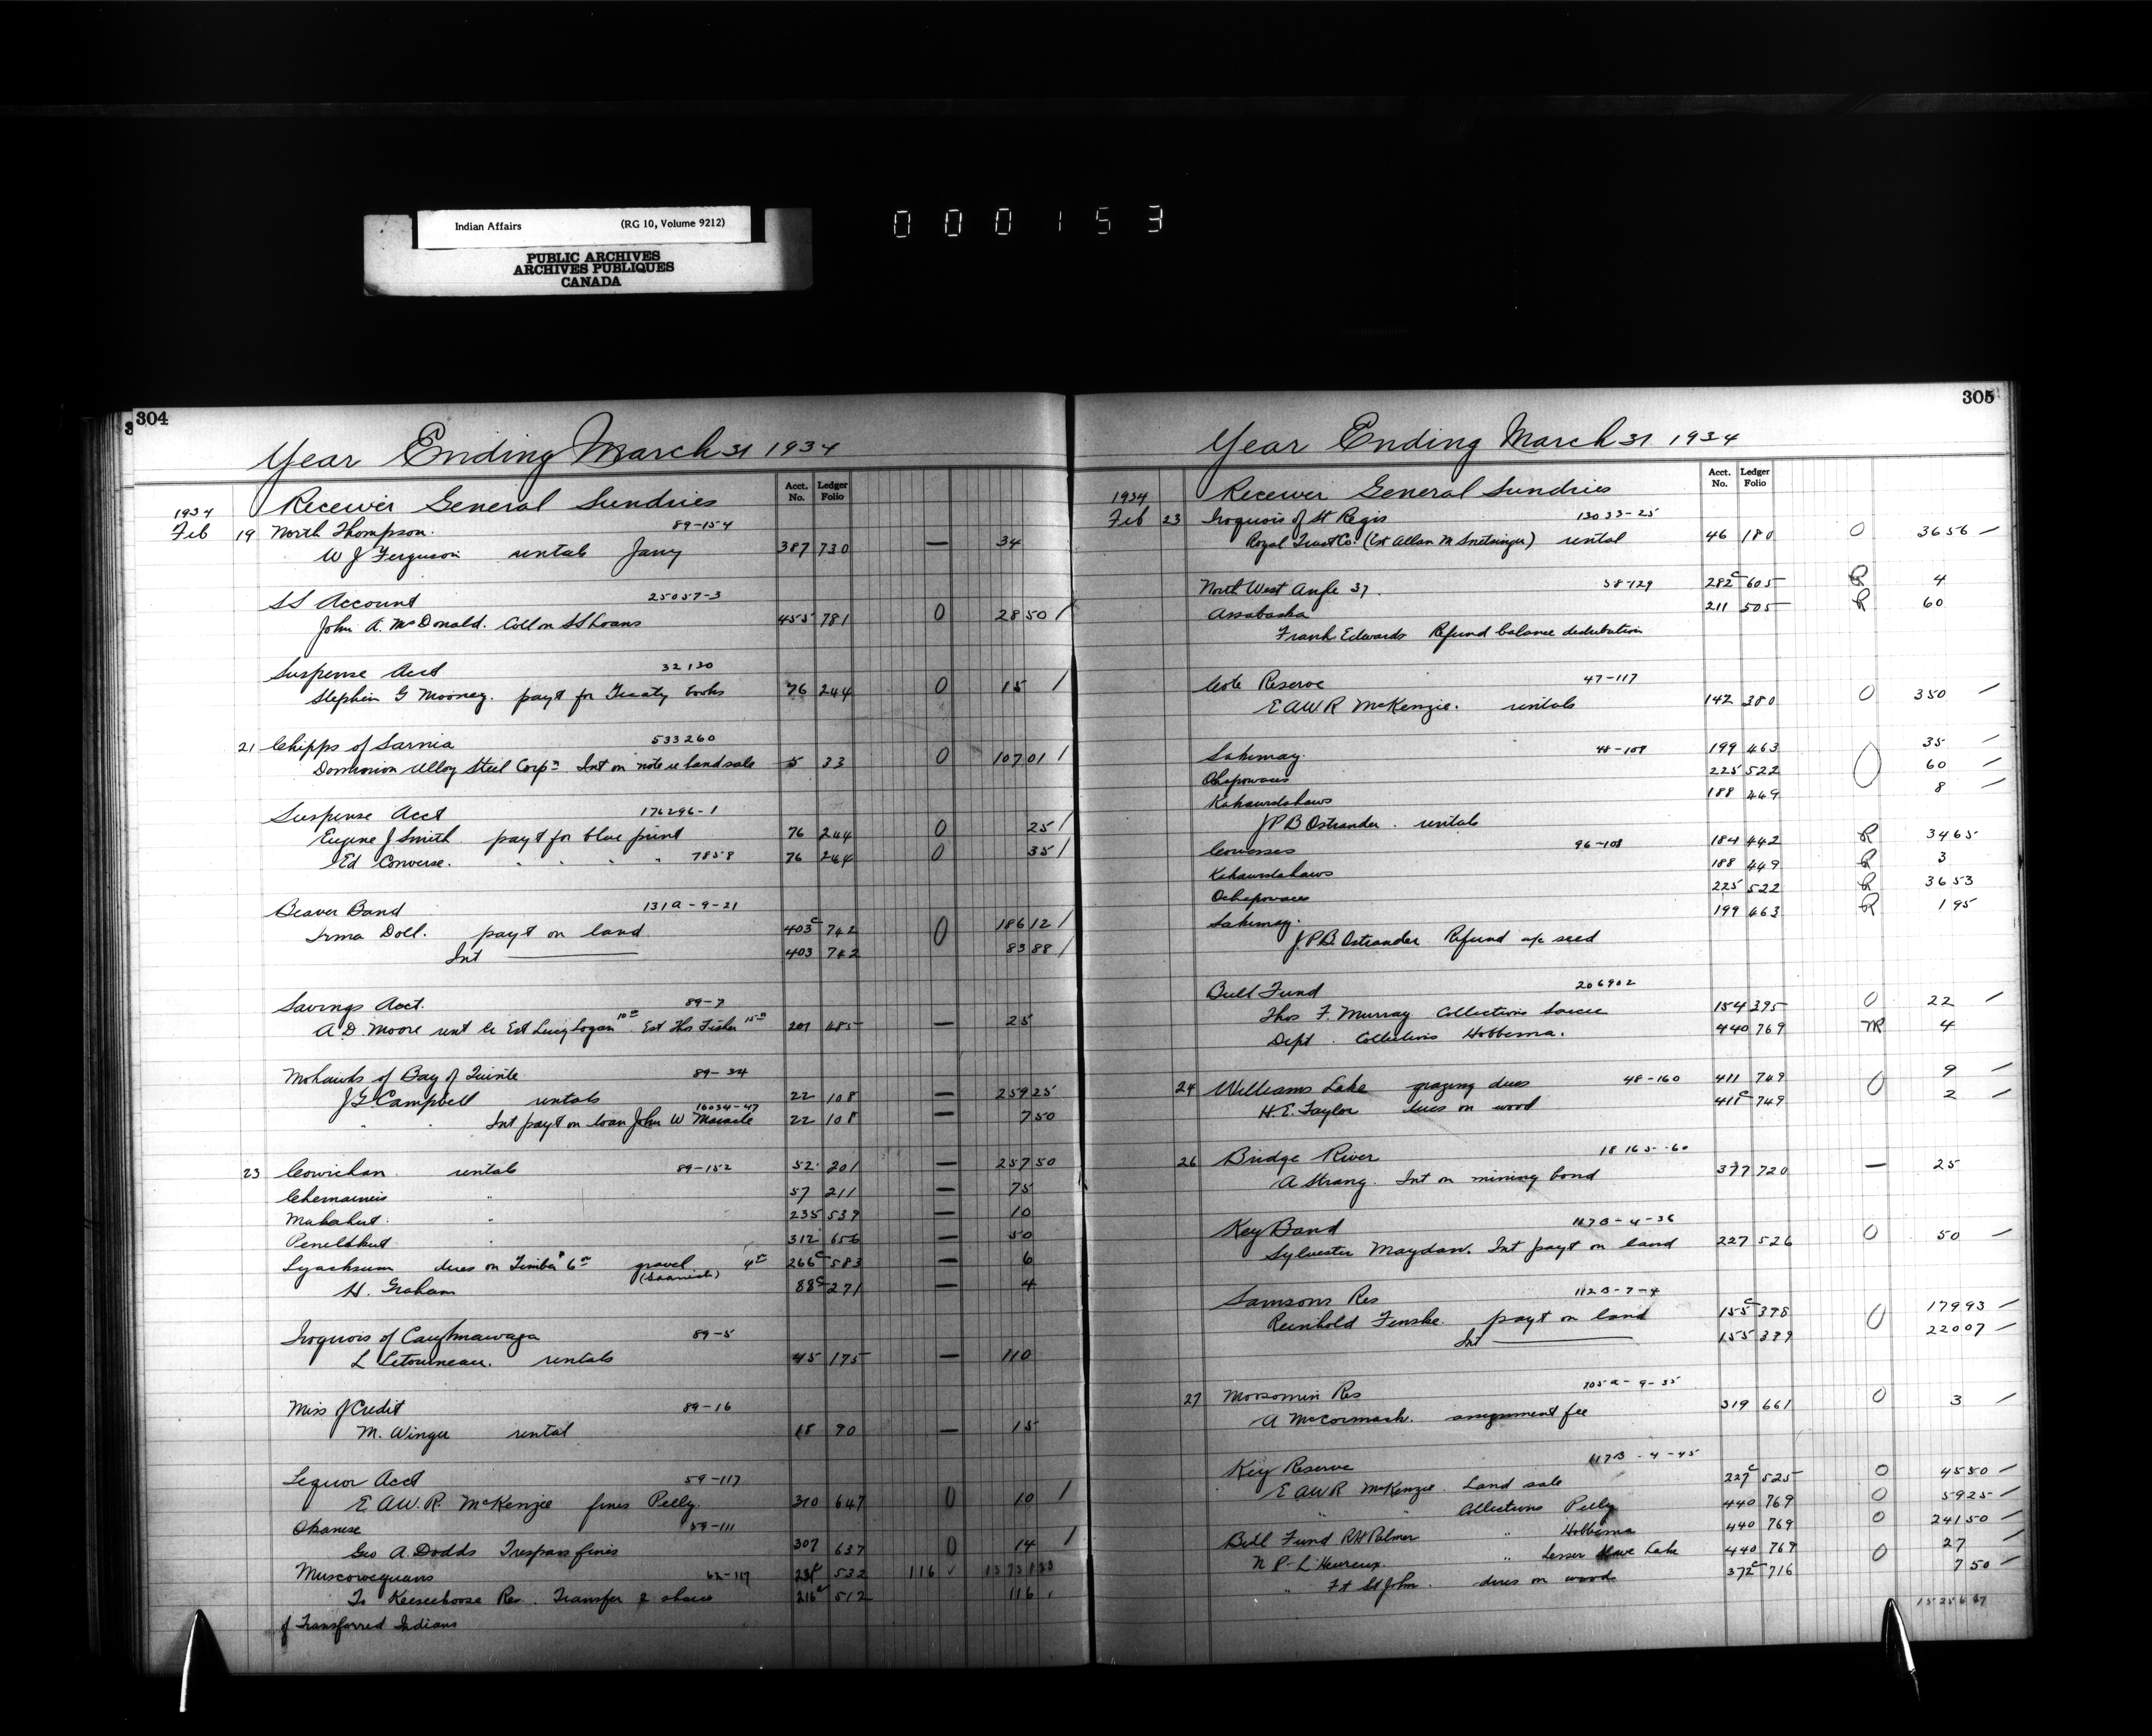 Indian Affairs (RG 10, Volume 9212)
PUBLIC ARCHIVES
ARCHIVES PUBLIQUES
CANADA
000153
304
Year Ending March 31 1934
Acct. No. Ledger Folio
1934 Receiver General Sundries
Feb 19 North Thompson. 89-154
W J Ferguson rentals Jany 387 730 — 34
SS Account 25057-3
John A. McDonald. Coll on SS Loans 455 781 0 28 50 /
Suspense Acct 32130
Stephen G Mooney. payt for Treaty books 76 244 0 15 /
21 Chipps of Sarnia 533260
Dominion Alloy Steel Corpn Int on note re land sale 5 33 0 107 01 /
Suspense Acct 176296-1
Eugene J Smith payt for blue print 76 244 0 25 /
Ed Converse. " " " " 7858 76 244 0 35 /
Beaver Band 131A-9-21
Irma Doll. payt on land 403c 742 0 186 12 /
Int 403 742 83 88 /
Savings Acct. 89-7
A. D. Moore rent le Est Lucy Logan 10 00 Est Thos Fisher 15 00 201 485 — 25
Mohawks of Bay of Quinte 89-34
J G Campbell rentals 22 108 — 259 25
16034-47
" " Int payt on loan John W Maracle 22 108 — 7 50
23 Cowichan rentals 89-152 52 201 — 257 50
Chemainus " 57 211 — 75
" 235 539 — 10
Penelakut " 312 656 — 50
Lyacksum dues on Timber 6 00 gravel 4 00 266c 583 — 6
(Saanich)
H. Graham 88c 271 — 4
Iroquois of Caughnawaga 89-5
L Letourneau. rentals 45 175 — 110
Miss of Credit 89-16
M. Winger rental 18 90 — 15
Liquor Acct 59-117
E A.W.R. McKenzie fines Pelly. 310 647 0 10 /
Okanese 59-111
Geo A. Dodds Trespass fines 307 637 0 14 /
Muscowequans 62-117 532 116 ✓
To Keeseekoose Res. Transfer of shares 216c 512 116
of Transferred Indians
305
Year Ending March 31 1934
Acct. No. Ledger Folio
1934 Receiver General Sundries
Feb 23 Iroquois of St Regis 13033-25
Royal Trust Co. (Est Allan M Snetsinger) rental 46 180 0 36 56 /
North West Angle 37. 58-129 282c 605 R 4
Assabaska 211 505 R 60
Frank Edwards Refund balance distribution
Cote Reserve 47-117
E A W R McKenzie. rentals 142 380 0 350 /
Sakimay. 48-109 199 463 35 /
Ochapowaces 225 522 0 60 /
Kahkewistahaws 188 449 8 /
J P B Ostrander. rentals
Cowesses 96-108 184 442 R 34 65
Kahkewistahaws 188 449 R 3
Ochapowaces 225 522 R 36 53
Sakimay. 199 463 R 1 95
J.P.B. Ostrander Refund a/c seed
Bull Fund 206902
Thos F. Murray Collections Sarcee 154 395 0 22 /
Dept. Collections Hobbema. 440 769 4
24 Williams Lake grazing dues 48-160 411 749 0 9 /
H. E. Taylor dues on wood 411c 749 2 /
26 Bridge River 18165-60
A Strang. Int on mining bond 377 720 — 25
Key Band 117B-4-36
Sylvester Maydan. Int payt on land 227 526 0 50 /
Samsons Res 112B-7-4
Reinhold Fenske. payt on land 155c 398 0 179 93 /
Int 155 399 220 07 /
27 Moosomin Res 105A-9-35
A McCormack. assignment fee 319 661 0 3 /
Key Reserve 117B-4-45
E A W R McKenzie. Land sale 227c 525 0 45 50 /
" " Collections Pelly 440 769 0 59 25 /
Bull Fund R H Palmer " Hobbema 440 769 0 241 50 /
N P L'Heureux. " Lesser Slave Lake 440 769 0 27 /
" Ft St John. dues on wood 372c 716 7 50 /